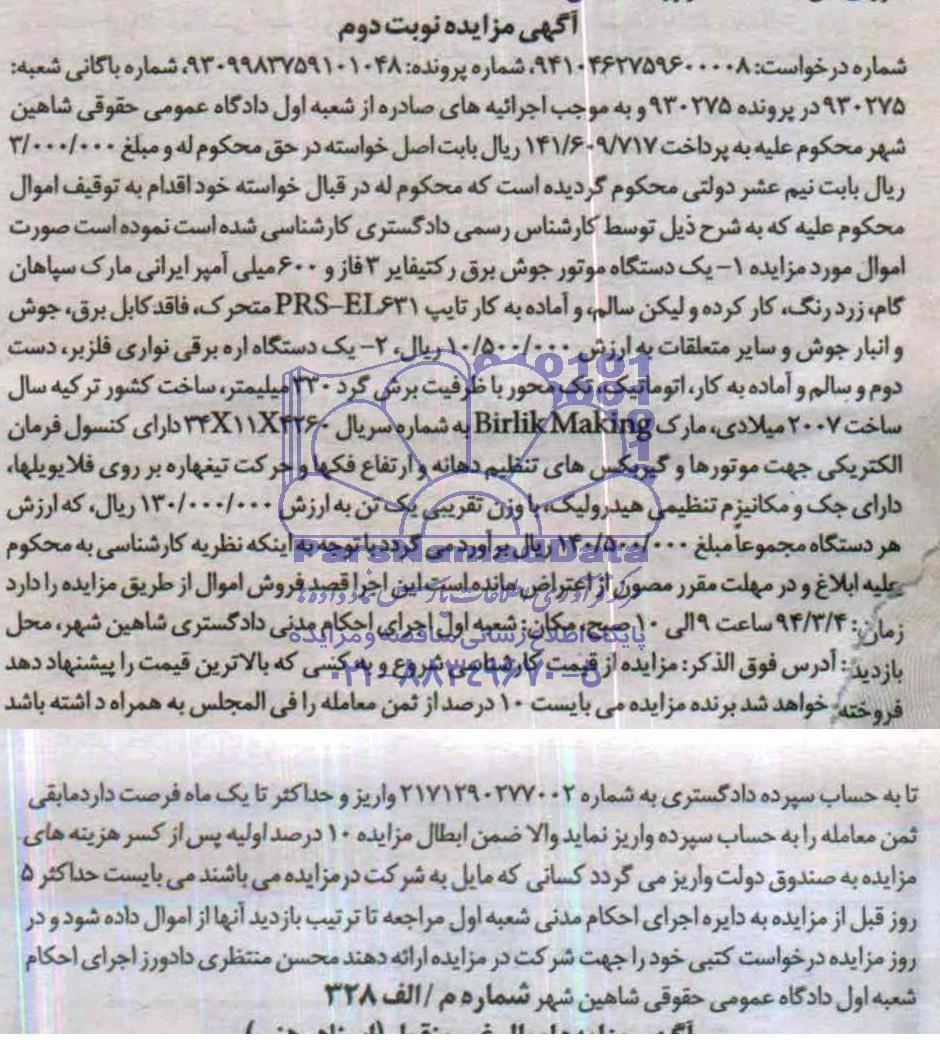 آگهی مزایده نوبت دوم
شماره درخواست: ۹۴۱۰۴۶۲۷۵۹۶۰۰۰۰۸، شماره پرونده: ۹۳۰۹۹۸۳۷۵۹۱۰۱۰۴۸، شماره باگانی شعبه:
۹۳۰۲۷۵ در پرونده ۹۳۰۲۷۵ و به موجب اجرائیه های صادره از شعبه اول دادگاه عمومی حقوقی شاهین
شهر محکوم علیه به پرداخت ۱۴۱/۶۰۹/۷۱۷ ریال بابت اصل خواسته در حق محکوم له و مبلغ ۳/۰۰۰/۰۰۰
ریال بابت نیم عشر دولتی محکوم گردیده است که محکوم له در قبال خواسته خود اقدام به توقیف اموال
محکوم علیه که به شرح ذیل توسط کارشناس رسمی دادگستری کارشناسی شده است نموده است صورت
اموال مورد مزایده ۱- یک دستگاه موتور جوش برق رکتیفایر ۳ فاز و ۶۰۰ میلی آمپر ایرانی مارک سپاهان
گام، زرد رنگ، کار کرده و لیکن سالم، و آماده به کار تایپ PRS-EL۶۳۱ متحرک، فاقد کابل برق، جوش
و انبار جوش و سایر متعلقات به ارزش ۱۰/۵۰۰/۰۰۰ ریال، ۲- یک دستگاه اره برقی نواری فلزبر، دست
دوم و سالم و آماده به کار، اتوماتیک، تک محور با ظرفیت برش گرد ۳۳۰ میلیمتر، ساخت کشور ترکیه سال
ساخت ۲۰۰۷ میلادی، مارک Birlik Making به شماره سریال ۳۴X۱۱X۴۲۶۰ دارای کنسول فرمان
الکتریکی جهت موتورها و گیربکس های تنظیم دهانه و ارتفاع فکها و حرکت تیغهاره بر روی فلایویلها،
دارای جک و مکانیزم تنظیمی هیدرولیک، با وزن تقریبی یک تن به ارزش ۱۳۰/۰۰۰/۰۰۰ ریال، که ارزش
هر دستگاه مجموعاً مبلغ ۱۴۰/۵۰۰/۰۰۰ ریال برآورد می گردد با توجه به اینکه نظریه کارشناسی به محکوم
علیه ابلاغ و در مهلت مقرر مصون از اعتراض مانده است این اجرا قصد فروش اموال از طریق مزایده را دارد
زمان: ۹۴/۳/۴ ساعت ۹ الی ۱۰ صبح، مکان: شعبه اول اجرای احکام مدنی دادگستری شاهین شهر، محل
بازدید: آدرس فوق الذکر: مزایده از قیمت کارشناسی شروع و به کسی که بالاترین قیمت را پیشنهاد دهد
فروخته خواهد شد برنده مزایده می بایست ۱۰ درصد از ثمن معامله را فی المجلس به همراه داشته باشد
ParsNamadData
پایگاه اطلاع رسانی مناقصه و مزایده
۰۲۱-۸۸۳۴۹۶۷۰-۵
تا به حساب سپرده دادگستری به شماره ۲۱۷۱۲۹۰۲۷۷۰۰۲ واریز و حداکثر تا یک ماه فرصت داردمابقی
ثمن معامله را به حساب سپرده واریز نماید والا ضمن ابطال مزایده ۱۰ درصد اولیه پس از کسر هزینه های
مزایده به صندوق دولت واریز می گردد کسانی که مایل به شرکت در مزایده می باشند می بایست حداکثر ۵
روز قبل از مزایده به دایره اجرای احکام مدنی شعبه اول مراجعه تا ترتیب بازدید آنها از اموال داده شود و در
روز مزایده درخواست کتبی خود را جهت شرکت در مزایده ارائه دهند محسن منتظری دادورز اجرای احکام
شعبه اول دادگاه عمومی حقوقی شاهین شهر شماره م /الف ۳۲۸